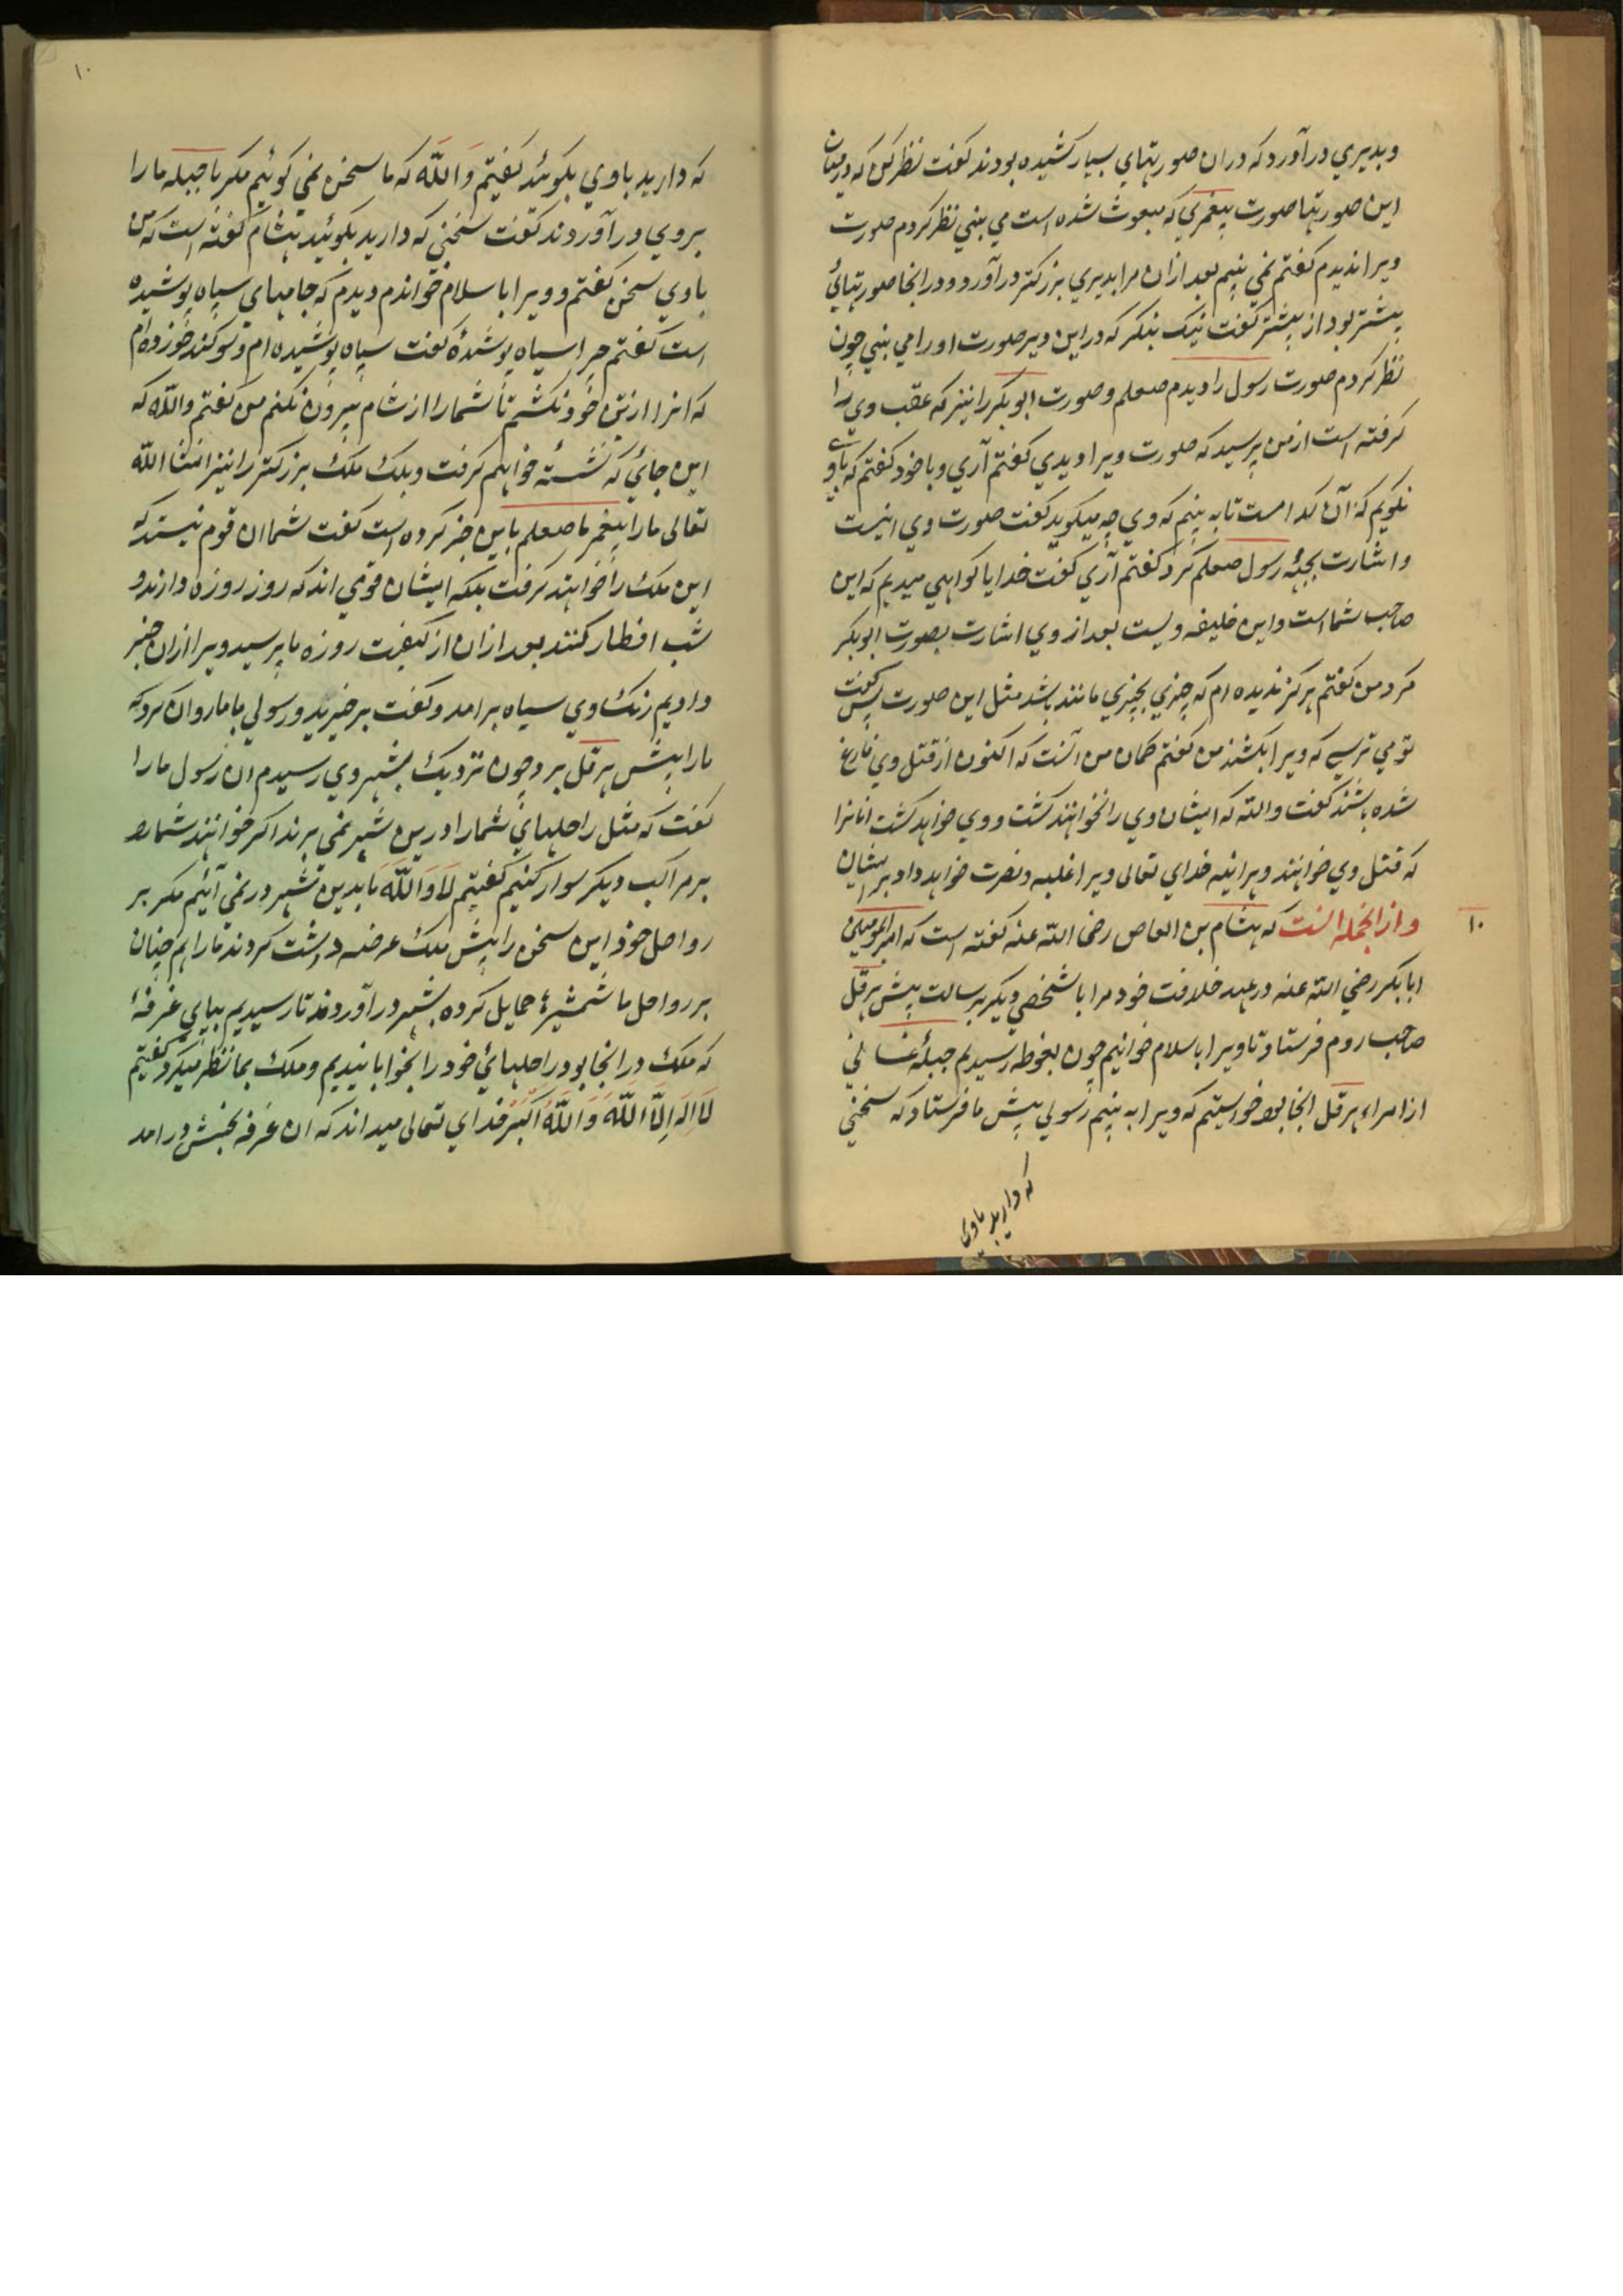 وبديري درآورد كه دران صورتهاي بسيار كشيده بودند كفت نظر كن كه در ميان
اين صورتها صورت پيغمبري كه مبعوث شده است مي بيني نظر كردم صورت
ويرا نديدم كفتم نمي بينم بعد ازان مرا بديري بزركتر درآورد و درانجا صورتهائي
بيشتر بود از پيشتر كفت نيك بنكر كه در اين دير صورت او را مي بيني چون
نظر كردم صورت رسول را ديدم صعلم و صورت ابو بكر را نيز كه عقب وي را
كرفته است از من پرسيد كه صورت ويرا ديدي كفتم آري و با خود كفتم كه باوي
نكويم كه آن كدامست تا به بينم كه وي چه ميكويد كفت صورت وي اينست
و اشارت بجثه رسول صعلم كرد كفتم آري كفت خدايا كواهي ميديم كه اين
صاحب شماست و اين خليفه ويست بعد از وي اشارت بصورت ابو بكر
كرد من كفتم هركز نديده ام كه چيزي بچيزي مانند باشد مثل اين صورت پس كفت
تو مي ترسي كه ويرا بكشند من كفتم كمان من آنست كه اكنون از قتل وي فارغ
شده باشند كفت والله كه ايشان وي را نخواهند كشت و وي خواهد كشت انانرا
كه قتل وي خواهند و هراينه خداي تعالى ويرا غلبه و نصرت خواهد داد بر ايشان
١٠
و از انجمله انست كه هشام بن العاص رضى الله عنه كفته است كه امير المومنين
ابا بكر رضي الله عنه در عهد خلافت خود مرا با شخصي ديكر برسالت پيش هرقل
صاحب روم فرستاد تا ويرا باسلام خوانيم چون بغوطه رسيديم جبلهٔ غساني
از امراء هرقل انجا بود خواستيم كه ويرا به بينيم رسولي پيش ما فرستاد كه سخني
كه داريد باوي
١٠
كه داريد باوي بكوئيد كفتيم والله كه ما سخن نمي كوئيم مكر با جبله ما را
بروي درآوردند كفت سخني كه داريد بكوئيد هشام كفته است كه من
باوي سخن كفتم و ويرا باسلام خواندم ديدم كه جامهاي سياه پوشيده
است كفتم چرا سياه پوشيدهٔ كفت سياه پوشيده ام و سوكند خورده ام
كه انرا از تن خود نكشم تا شما را از شام بيرون نكنم من كفتم والله كه
اين جائي كه نشستهٔ خواهيم كرفت و بلك ملك بزركتر را نيز انشا الله
تعالى ما را پيغمبر ما صعلم باين خبر كرده است كفت شما ان قوم نيستيد كه
اين ملك را خواهند كرفت بلكه ايشان قومي اند كه روز روزه دارند و
شب افطار كنند بعد ازان از كيفيت روزه ما پرسيد ويرا ازان خبر
داديم رنك وي سياه برامد و كفت برخيزيد و رسولي با ما روان كرد كه
ما را پيش هرقل برد چون نزديك بشهر وي رسيدم ان رسول ما را
كفت كه مثل راحلهاي شما را درين شهر نمي برند اكر خوانند شما را
بر مراكب ديكر سوار كنيم كفتيم لا والله ما بدين شهر در نمي آئيم مكر بر
رواحل خود اين سخن را پيش ملك عرضه داشت كردند ما را هم چنان
بر رواحل ما شمشيرها حمايل كرده بشهر درآوردند تا رسيديم بپاي غرفهٔ
كه ملك در انجا بود راحلهائي خود را بخوابانيديم و ملك بما نظر ميكرد كفتيم
لا اله الا الله و الله اكبر خداي تعالى ميداند كه ان غرفه بجنبش درامد